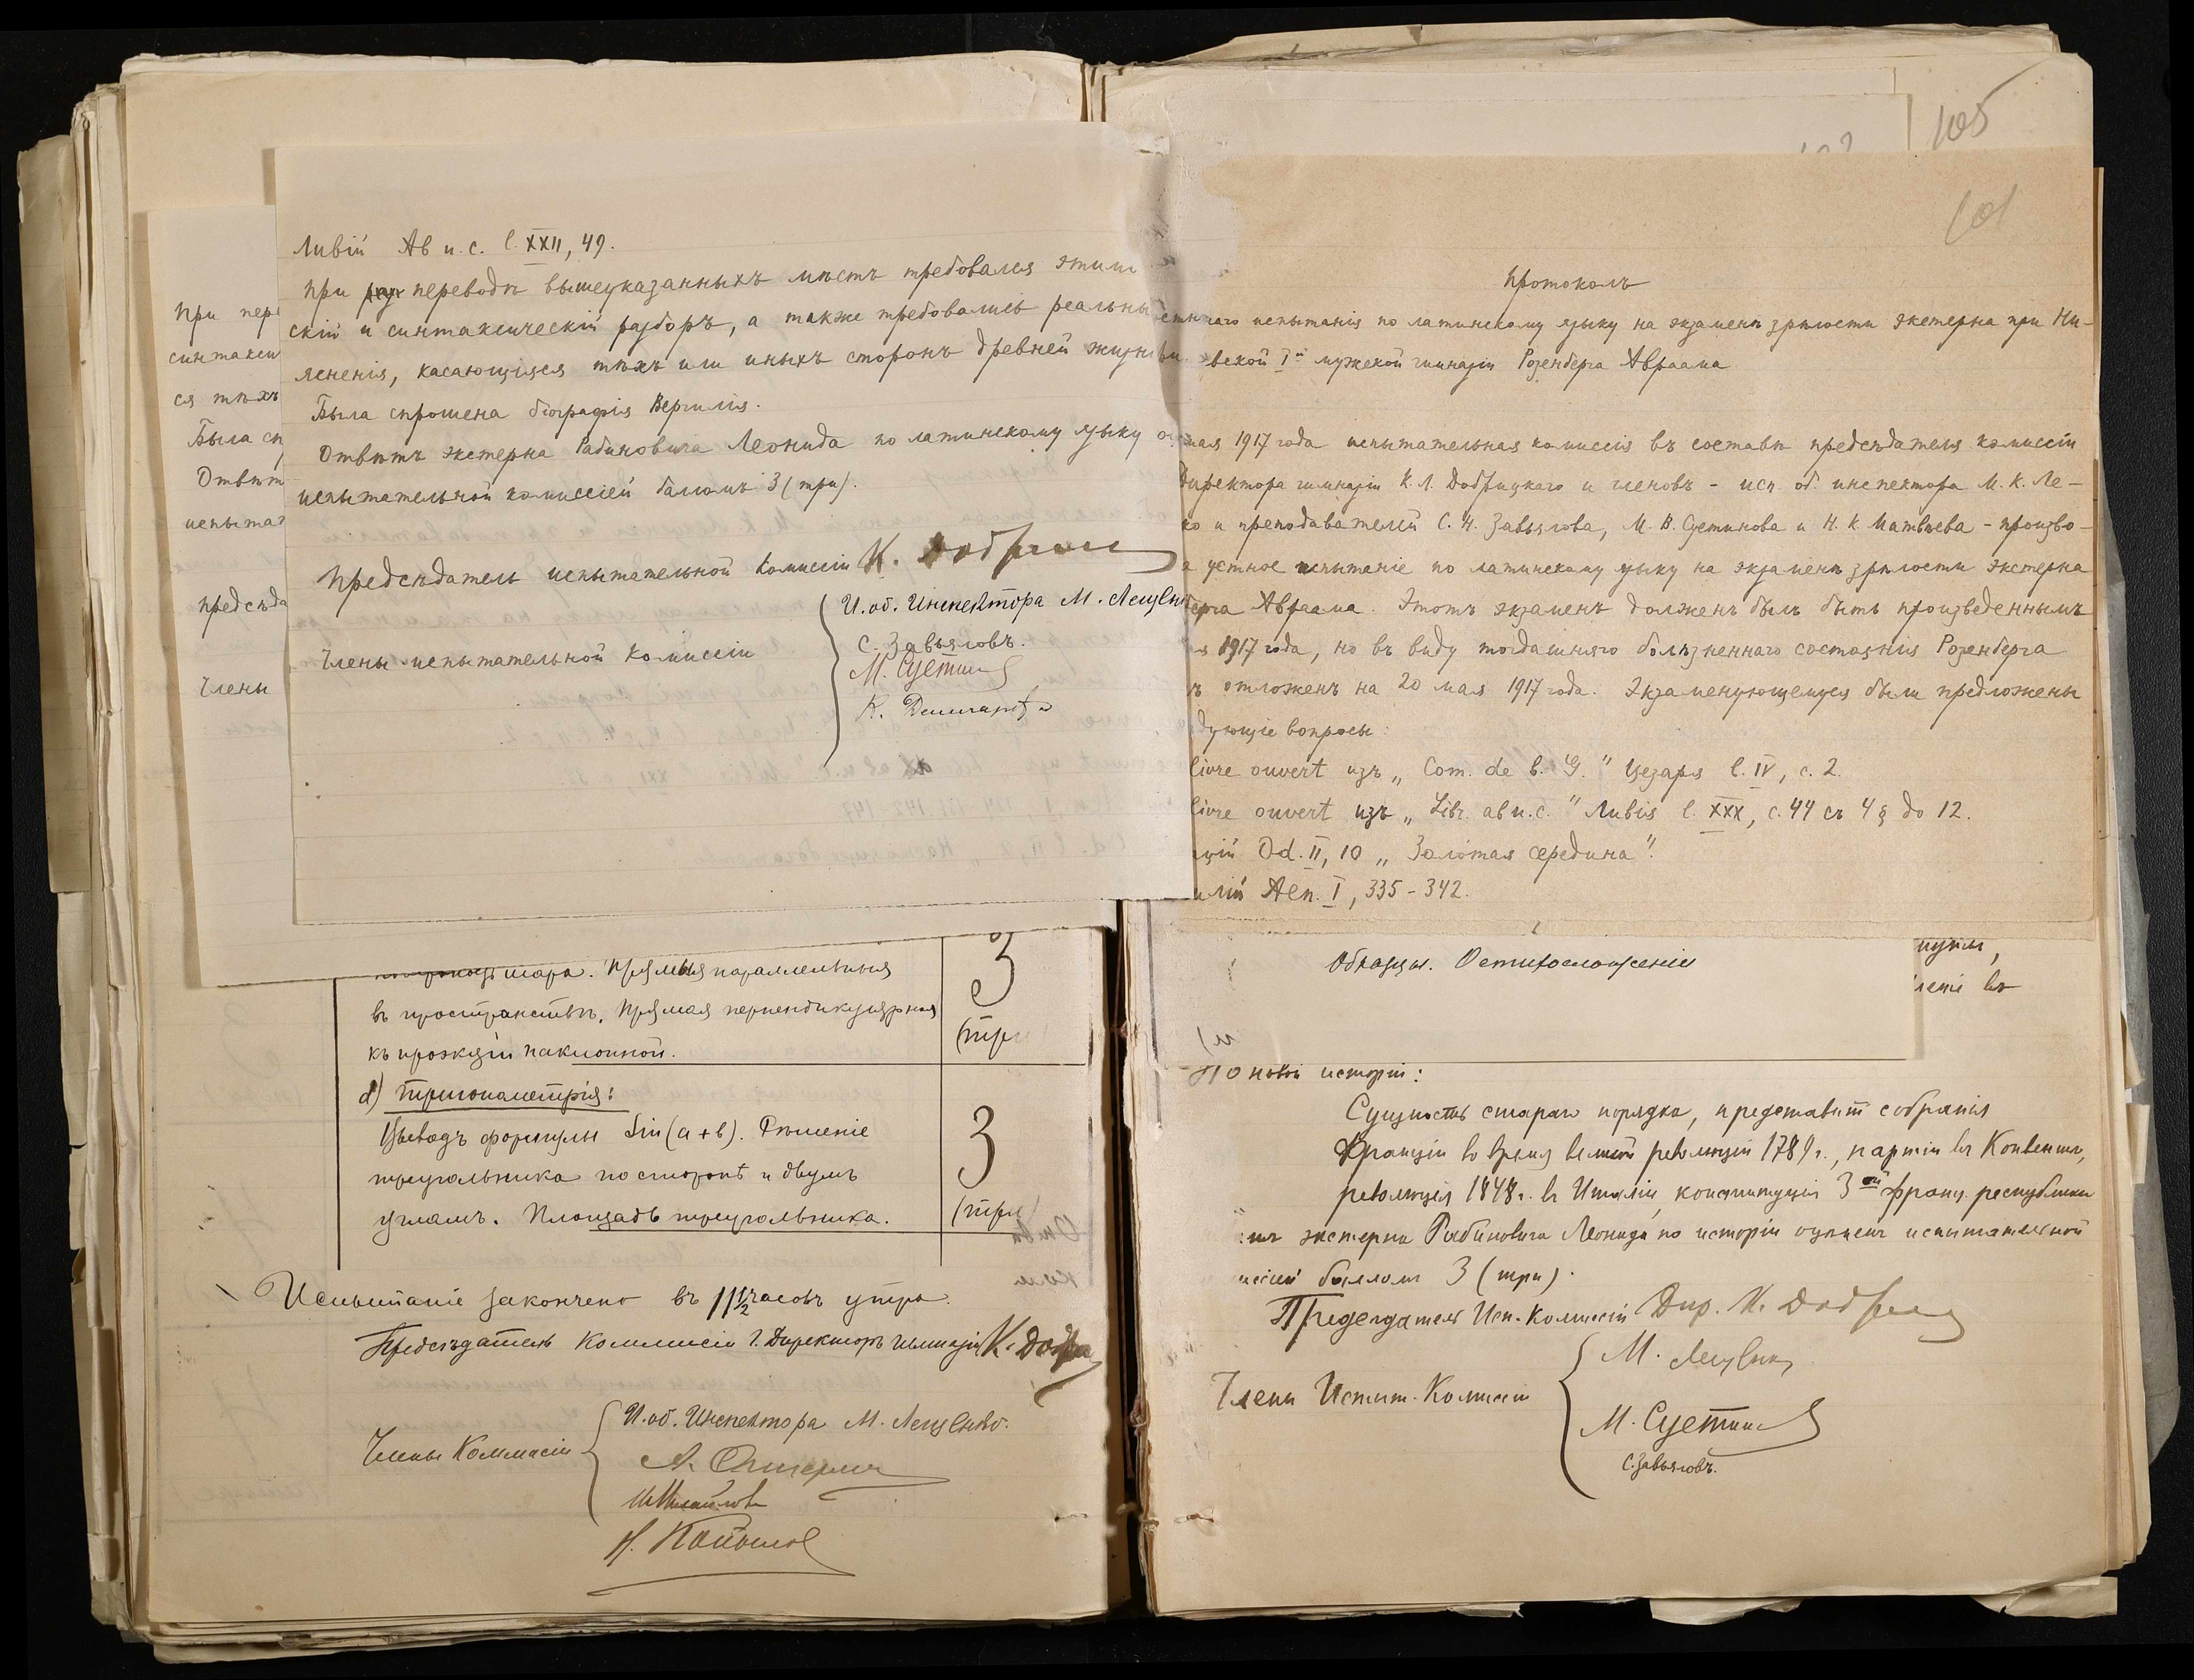 Ливій Ab u. c. l. XXII, 49.
При переводѣ вышеуказанныхъ мѣстъ требовался этим
скій и синтаксическій разборъ, а также требовались реальны
ясненія, касающіяся тѣхъ или иныхъ сторонъ древней жизни
Была спрошена біографія Вергилія.
Отвѣтъ экстерна Рабиновича Леонида по латинскому языку
испытательной комиссіей балломъ 3 (три).
Предсѣдатель испытательной Комиссіи К.
Члены испытательной комиссіи
И. об. Инспектора М.
С. Завьяловъ.
М. Сцетин
К.
При пер
синтакси
ся тѣхъ
Была сп
Отвѣт
испытат
предсѣда
Члены
шара. Прямыя параллельныя
въ пространствѣ. Прямая перпендикулярная
къ проэкціи наклонной.
3
(три
d) Тригонометрія:
Выводъ формулы Sin(a+b). Рѣшеніе
треугольника по сторонѣ и двумъ
угламъ. Площадь треугольника.
3
(три)
Испытаніе закончено въ 11 1/2 часовъ утра.
Предсѣдатель Коммисіи Г. Директоръ гимназіи К.
Члены Коммисіи
И. об. Инспектора М.
105
101
Протоколъ
испытанія по латинскому языку на экзаменѣ зрѣлости экстерна при Ни-
вской I й мужской гимназіи Розенберга Авраама
мая 1917 года испытательная комиссія въ составѣ предсѣдателя комиссіи
Директора гимназіи К. Л. Добрицкаго и членовъ - исп. об. инспектора М. К. Ле-
ко и преподавателей С. Н. Завьялова, М. В. Сцетинова и Н. К. Матвѣева - произво-
а устное испытаніе по латинскому языку на экзаменѣ зрѣлости экстерна
берга Авраама. Этотъ экзаменъ долженъ былъ быть произведеннымъ
я 1917 года, но въ виду тогдашняго болѣзненнаго состоянія Розенберга
ъ отложенъ на 20 мая 1917 года. Экзаменующемуся были предложены
дующіе вопросы:
livre ouvert изъ „ Com. de b. G. " Цезаря l. IV, c. 2.
livre ouvert изъ „ Libr. ab u. c. " Ливія l. XXX, c. 44 съ 4 § до 12.
цій Od. II, 10 „ Золотая середина".
илій Aen. I, 335 - 342.
Образцы.
леніе въ
По новой исторіи:
Сущность стараго порядка, представит. собранія
Франціи во время великой революціи 1789 г., партіи въ Конвентѣ,
революція 1848 г. въ Италіи, конституція 3-ей франц. республики
экстерна Рабиновича Леонида по исторіи оцѣненъ испытательной
миссіей балломъ 3 (три).
Предсѣдатель Исп. Комиссіи Дир. К.
Члены Испыт. Комиссіи
М.
М. Сцетин
С. Завьяловъ.